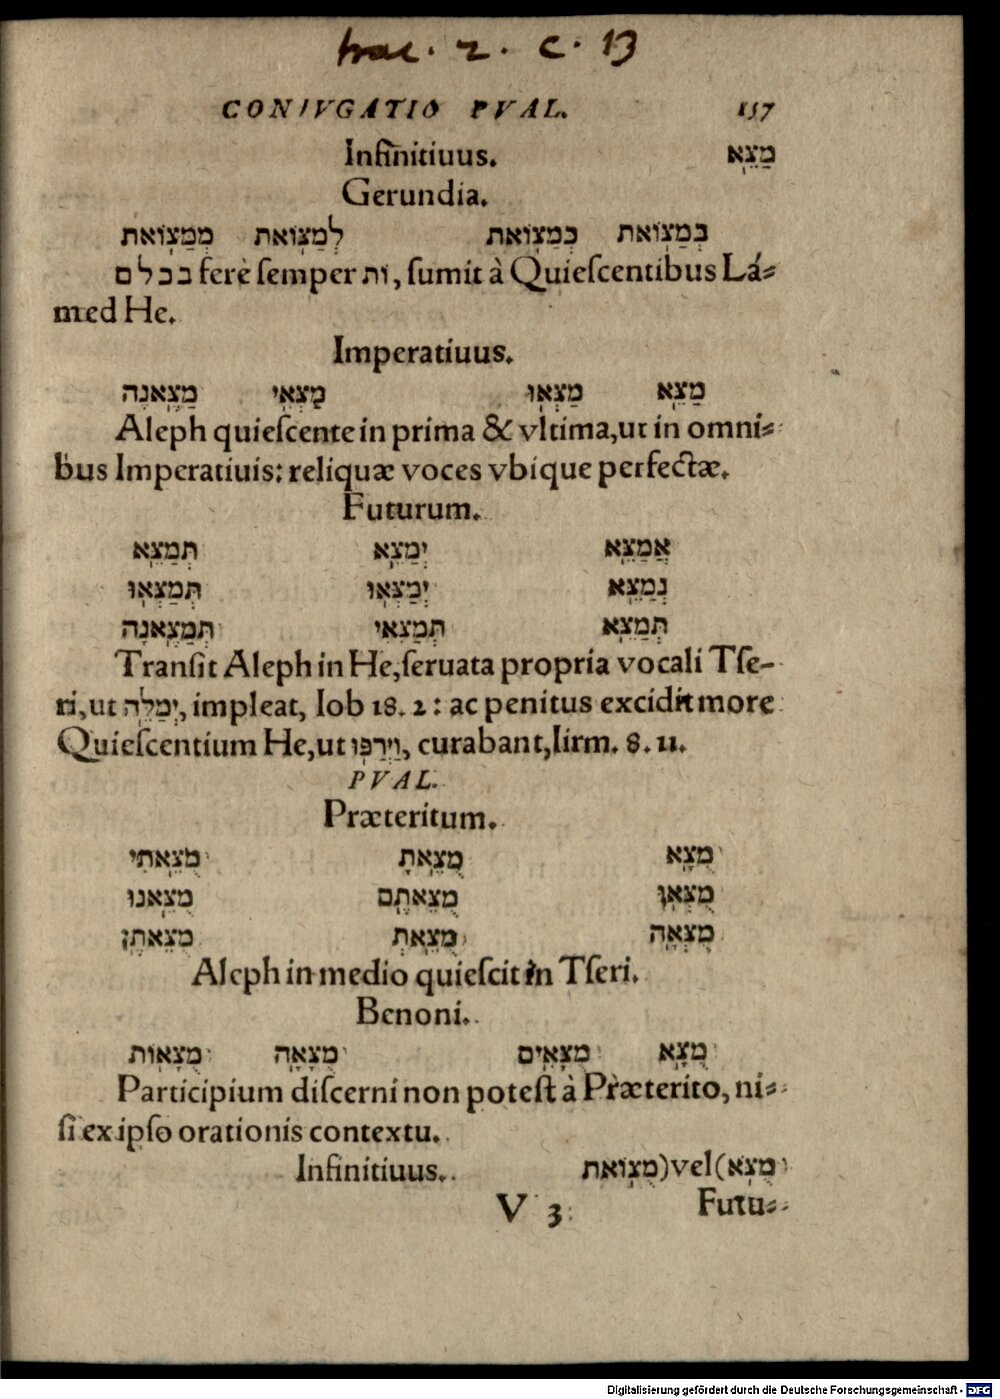 trac. 2. c. 13
CONIVGATIO PVAL. 157
Infinitiuus. מַצֵּא
Gerundia.
בְּמַצּוֹאת כְּמַצּוֹאת לְמַצּוֹאת מִמַּצּוֹאת
בכלם ferè semper וֹת, sumit à Quiescentibus Lá=
med He.
Imperatiuus.
מַצֵּא מַצְּאוּ מַצְּאִי מַצֶּאנָה
Aleph quiescente in prima & vltima, ut in omni=
bus Imperatiuis: reliquæ voces vbique perfectæ.
Futurum.
אֲמַצֵּא יְמַצֵּא תְּמַצֵּא
נְמַצֵּא יְמַצְּאוּ תְּמַצְּאוּ
תְּמַצֵּא תְּמַצְּאִי תְּמַצֶּאנָה
Transit Aleph in He, seruata propria vocali Tse-
ri, ut יְמַלֵּה, impleat, Iob 18. 2: ac penitus excidit more
Quiescentium He, ut וַיְרַפּוּ, curabant, Iirm. 8. 11.
PVAL.
Præteritum.
מֻצָּא מֻצֵּאתָ מֻצֵּאתִי
מֻצְּאוּ מֻצֵּאתֶם מֻצֵּאנוּ
מֻצְּאָה מֻצֵּאתְ מֻצֵּאתֶן
Aleph in medio quiescit in Tseri.
Benoni.
מֻצָּא מֻצָּאִים מֻצָּאָה מֻצָּאוֹת
Participium discerni non potest à Præterito, ni=
si ex ipso orationis contextu.
Infinitiuus. מֻצֹּא) vel (מֻצּוֹאת
V 3 Futu=
Digitalisierung gefördert durch die Deutsche Forschungsgemeinschaft - DFG